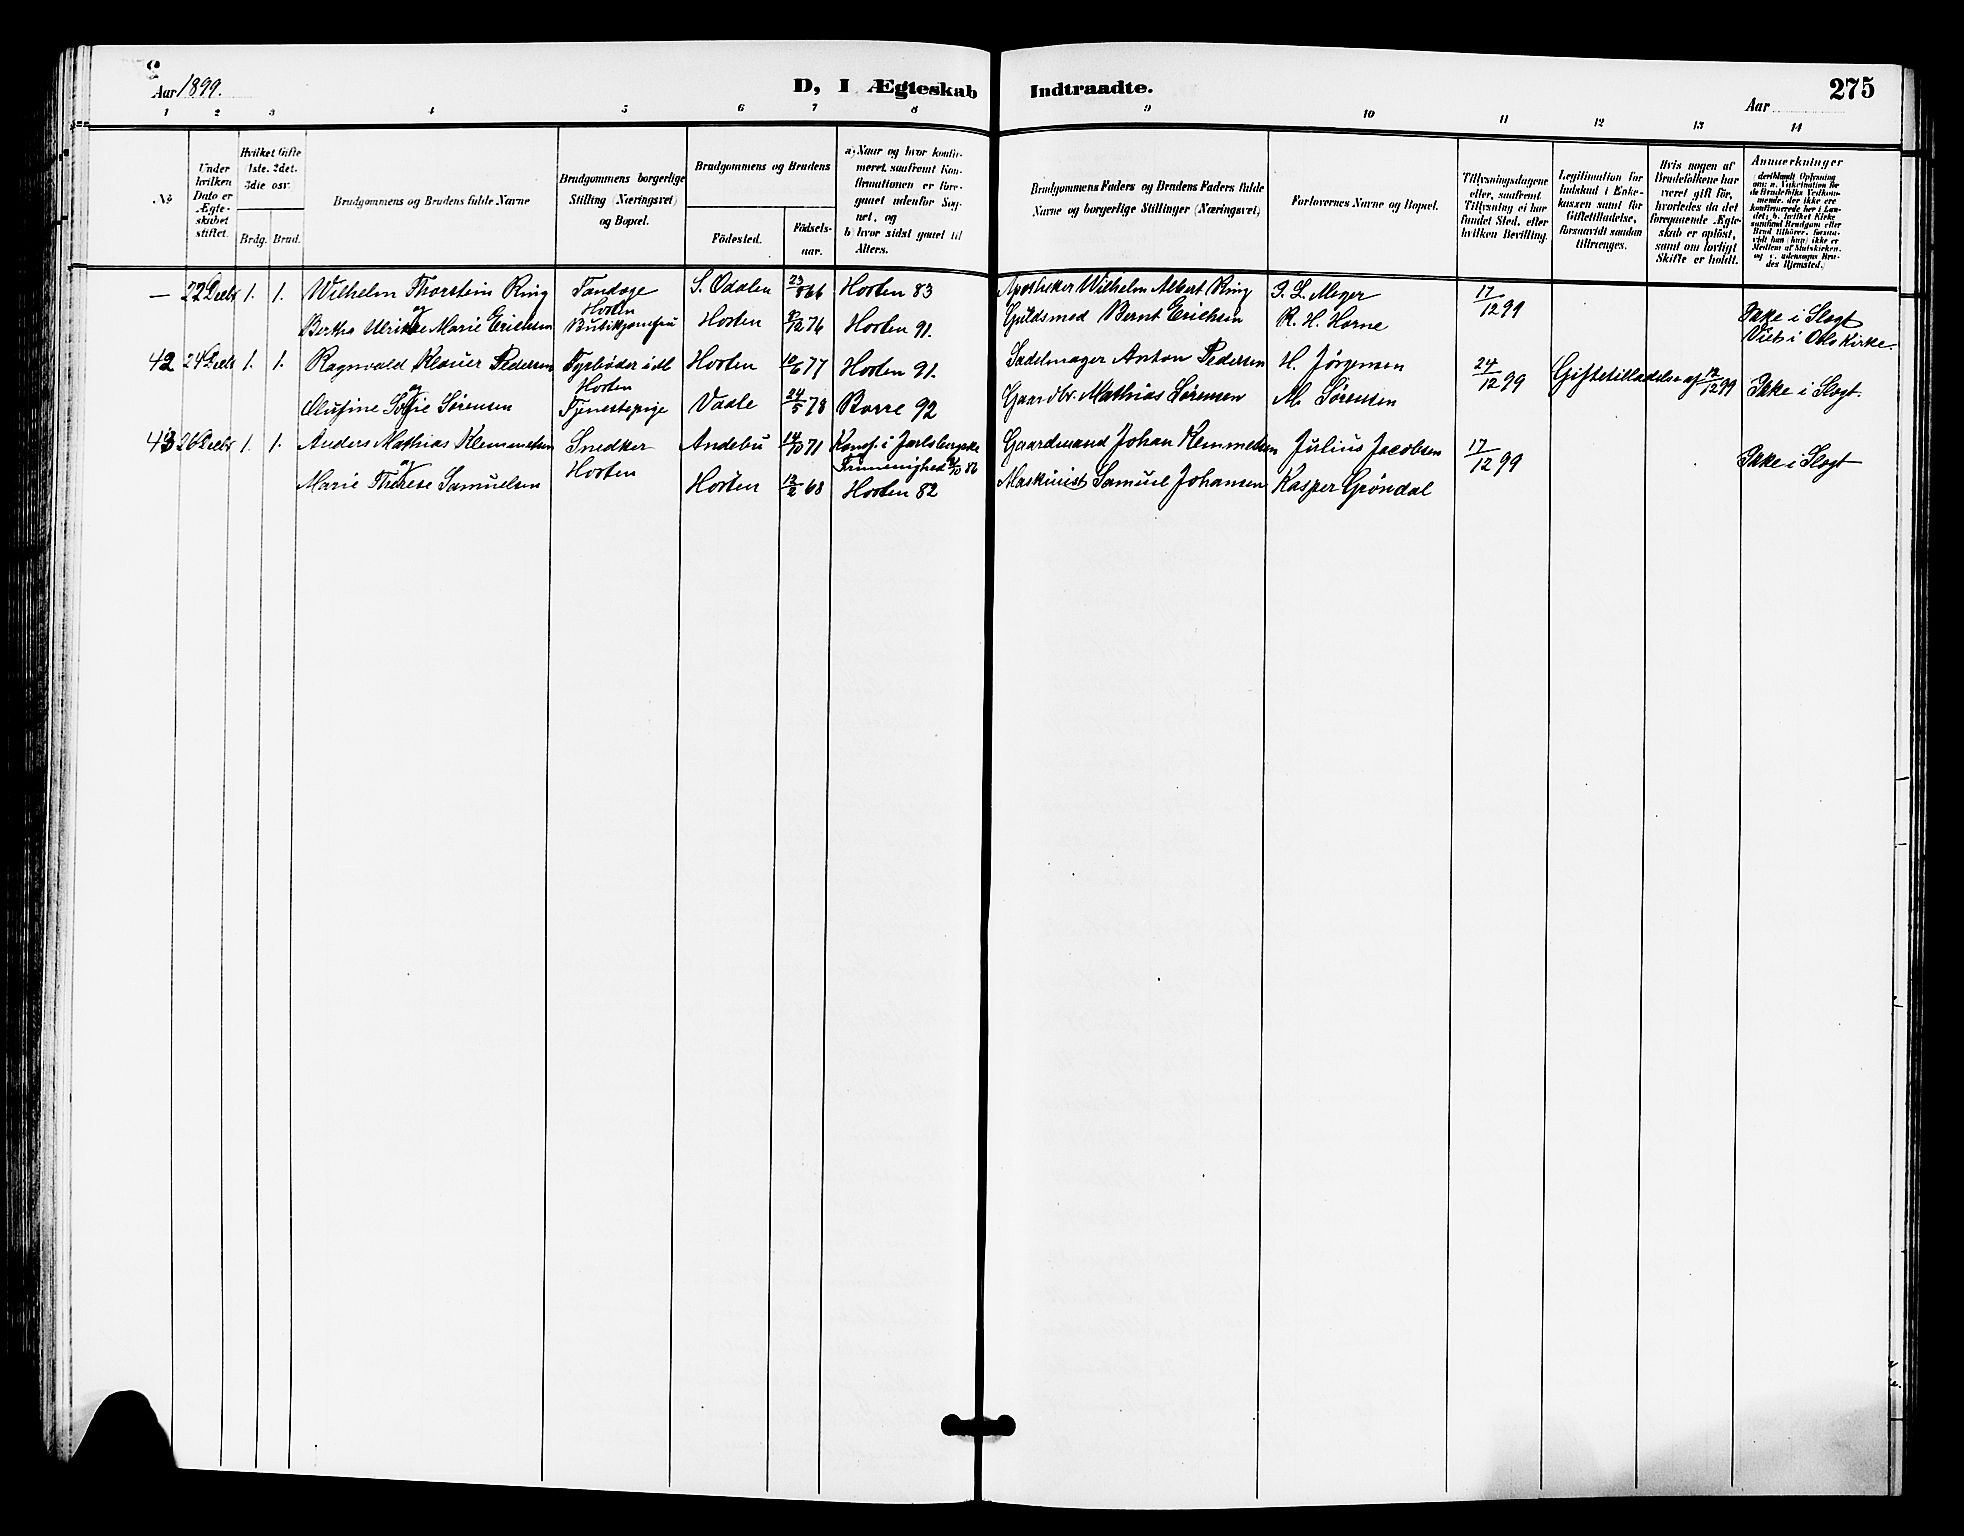 Aar 1899.
D, I Ægteskab Indtraadte.
275
Aar
1 2 3 4 5 6 7 8 9 10 11 12 13 14
No
Under hvilken Dato er Ægteskabet stiftet.
Hvilket Gifte 1ste. 2det. 3die osv.
Brdg. Brud.
Brudgommens og Brudens fulde Navne
Brudgommens borgerlige Stilling (Næringsvei) og Bopæl.
Brudgommens og Brudens
Födested.
Födselsaar.
a) Naar og hvor konfirmeret, saafremt Konfirmationen er foregaaet udenfor Sognet, og
b) hvor sidst gaaet til Alters.
Brudgommens Faders og Brudens Faders fulde Navne og borgerlige Stillinger (Næringsvei)
Forlovernes Navne og Bopæl.
Tillysningsdagene eller, saafremt Tillysning ei har fundet Sted, efter hvilken Bevilling.
Legitimation for Indskud i Enkekassen samt for Giftetilladelse, forsaavidt saadan tiltrænges.
Hvis nogen af Brudefolkene har været gift för, hvorledes da det foregaaende Ægteskab er oplöst, samt om lovligt Skifte er holdt.
Anmerkninger
— 22 Decbr 1. 1. Wilhelm Thorstein Ring Tandlæge S. Odalen 23/8 66 Horten 83 Apotheker Wilhelm Albert Ring P. L. Meyer 17/12 99
og Horten
Bertha Ulrikke Marie Erichsen Butikjomfru Horten 8/12 76 Horten 91. Guldsmed Bernt Erichsen R. H. Horne Ikke i Slegt
Viet i Ols Kirke.
42 24 Decbr 1. 1. Ragnvald Klaver Pedersen Fyrbøder Horten 10/6 77 Horten 91. Sadelmager Anton Pedersen H. Jörgensen 24/12 99 Giftetilladelse af 12/12 99 Ikke i Slegt.
og Horten
Olufine Sofie Sørensen Tjenestepige Vaale 24/5 78 Borre 92 Gaardbr. Mathias Sørensen M. Sørensen
43 26 Decbr 1. 1. Anders Mathias Klemmetsen Snedker Andebu 14/10 71 Konf. i Jarlsbergske Gaardmand Johan Klemmetsen Julius Jacobsen 17/12 99 Ikke i Slegt
og Horten Frimenighed 86
Marie Therese Samuelsen Horten 12/2 68 Horten 82 Maskinist Samuel Johansen Kasper Grøndal